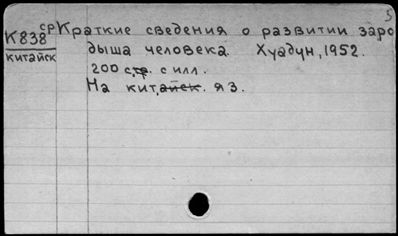 5
ср Краткие сведения о развитии заро
К838 дыша человека. Хуадун, 1952.
китайск 200 стр. с илл.
На китайск. яз.